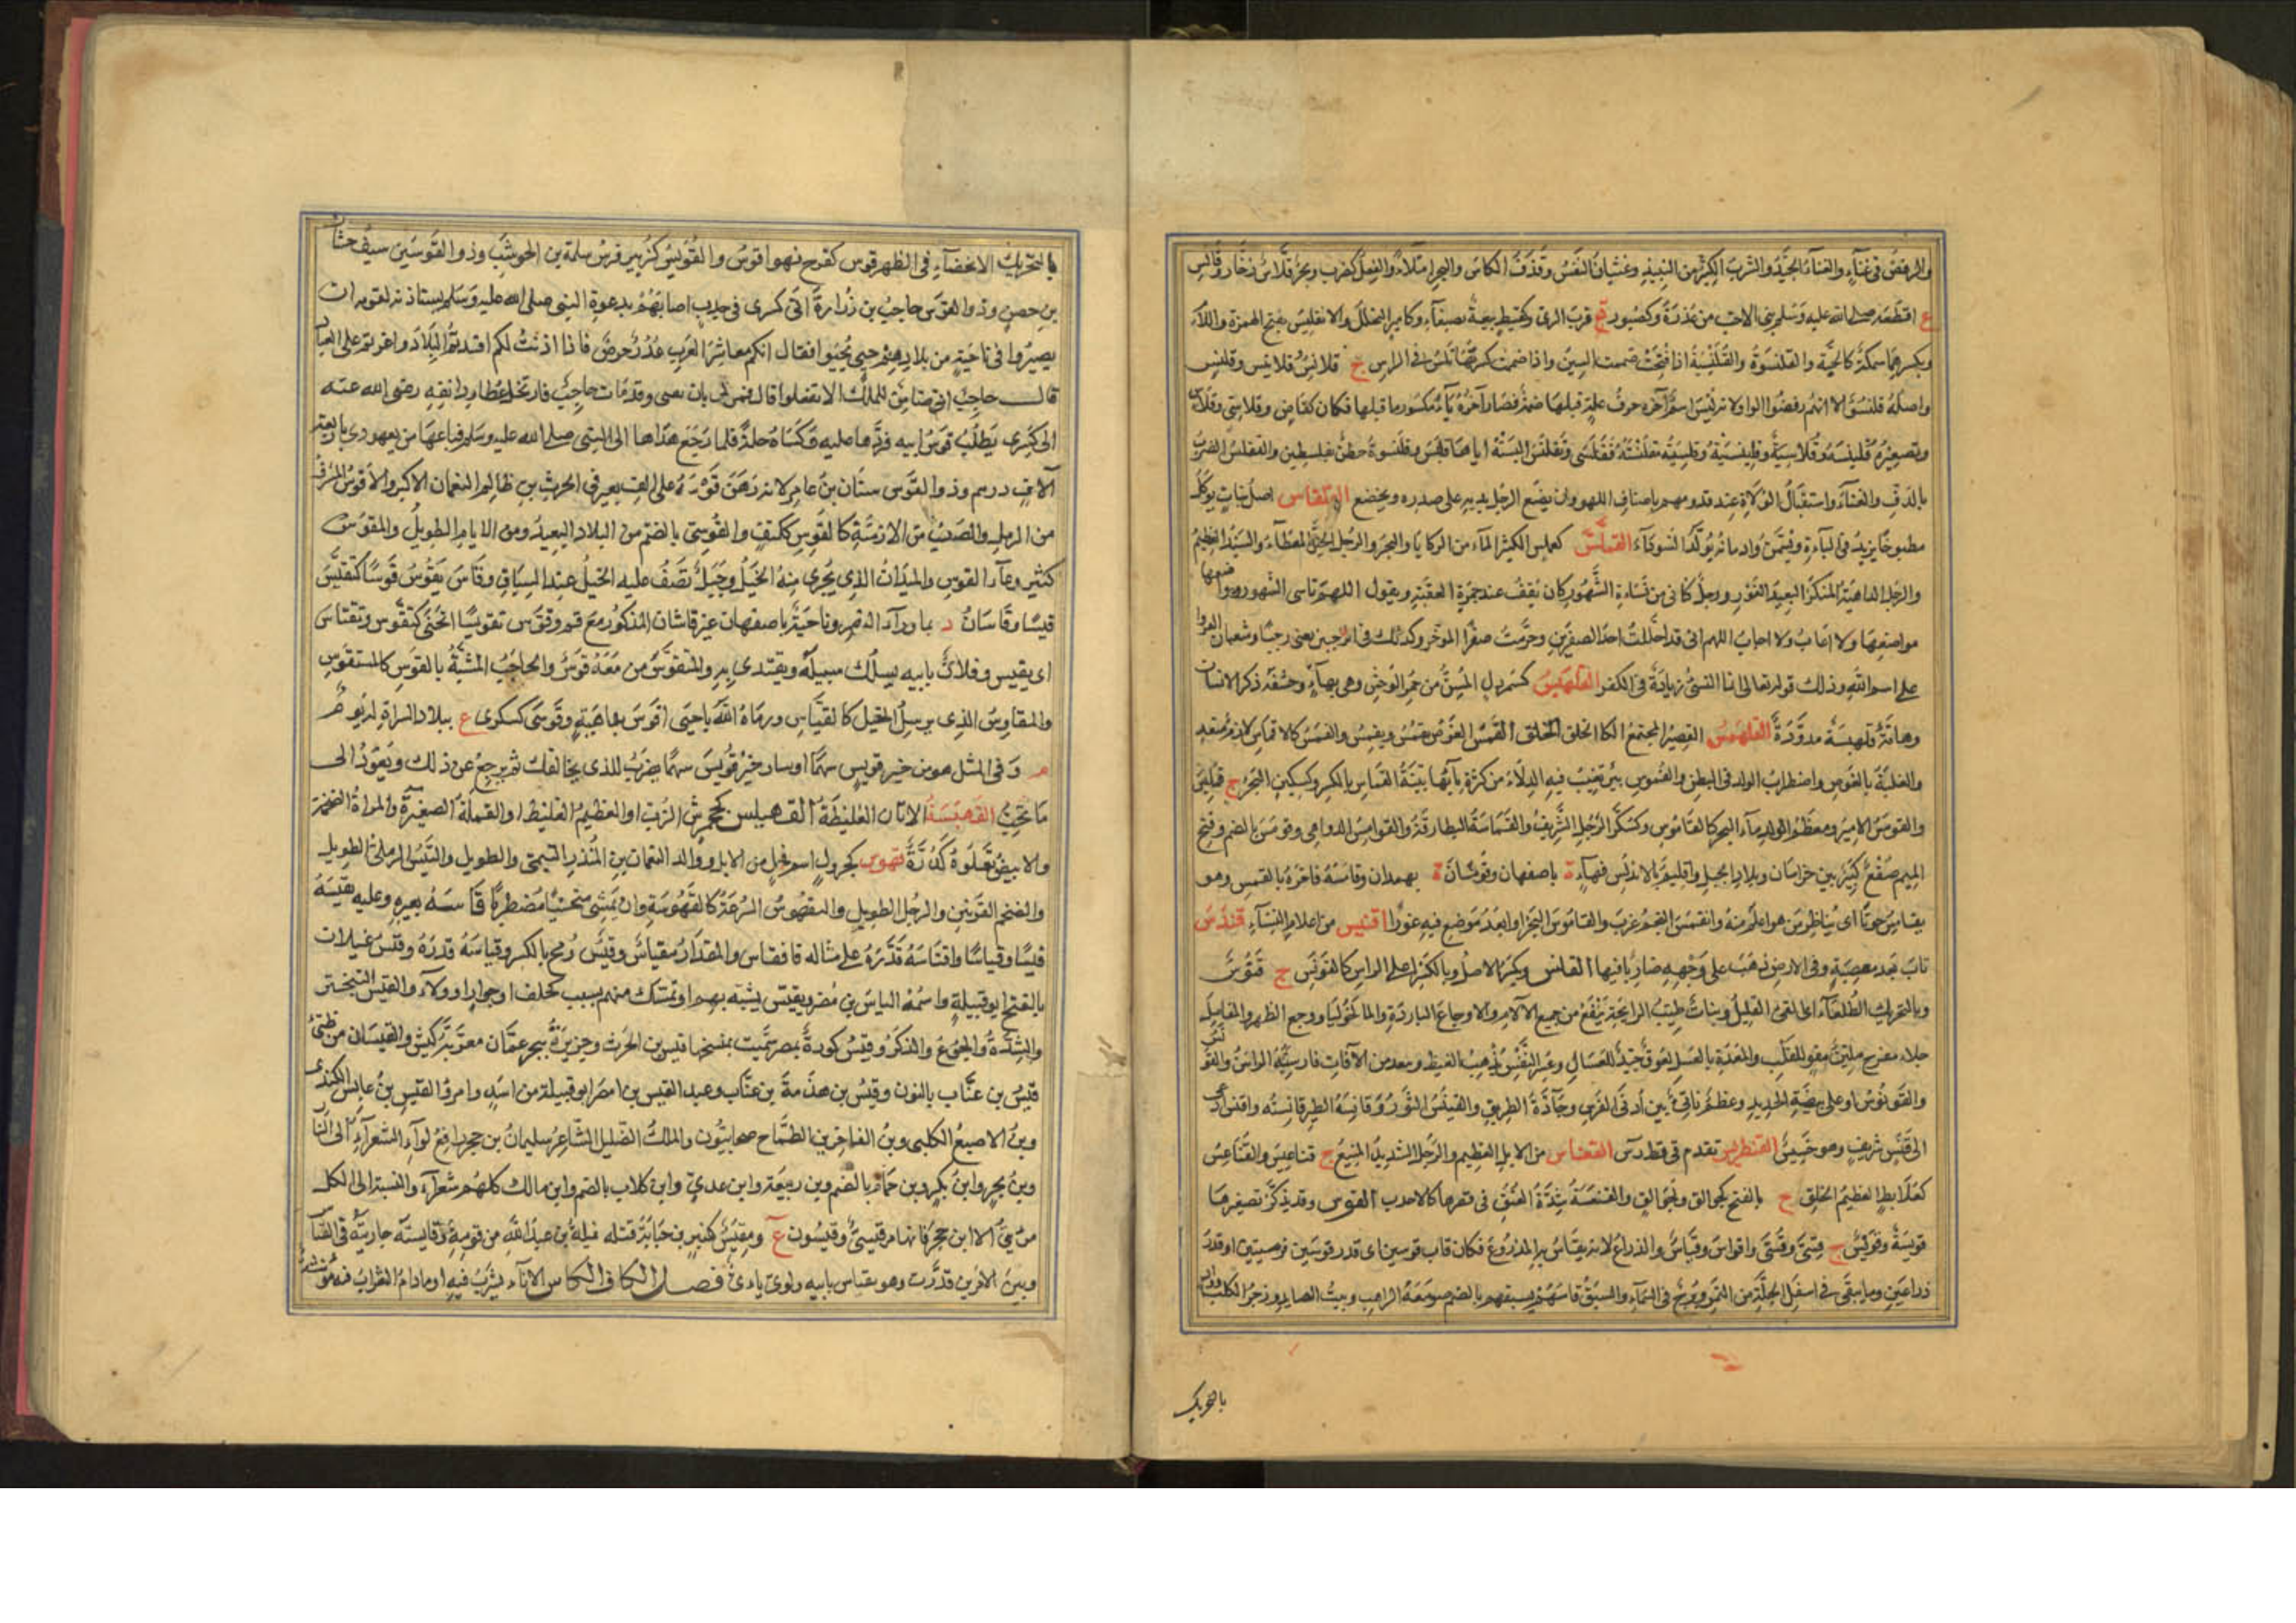 والرقص في غناء والغناء الجيد والشرب الكثير من النبيذ وغثيان النفس وقذف الكاس والبحر امتلاء والفعل كضرب وبحر قلاس زخار وقالس
ع اقطعه صلى الله عليه وسلم بني الاحب من عذرة وكصبور ة قرب الري وكقبيط بيعة بصنعاء وكامير النحل والانقليس بفتح الهمزة واللام
وبكسرهما سمكة كالحية والقلنسوة والقلنسية اذا فتحت ضممت السين واذا ضممت كسرتها تلبس في الراس ج قلانس وقلانيس وقلنس
واصله قلنسو الا انهم رفضوا الواو لانه ليس اسم آخره حرف علة قبلها ضمة فصار آخره ياء مكسور ما قبلها فكان كقاض وقلاسي وقلاس
وتصغيره قلينسة وقلاسية وقلينسية وقليسية وقلسيته فتقلسى وتقلنس البسته اياها فلبس وقلنسوة حصن بفلسطين والتقليس الضرب
بالدف والغناء واستقبال الولاة عند قدومهم باصناف اللهو وان يضع الرجل يديه على صدره ويخضع القلقاس اصل نبات يؤكل
مطبوخا يزيد في الباءة ويسمن وادمانه يولد السوداء القلمس كعملس الكثير الماء من الركايا والبحر والرجل الخير المعطاء والسيد العظيم
والرجل الداهية المنكر البعيد الغور ورجل كناني من نساة الشهور كان يقف عند جمرة العقبة ويقول اللهم ناسئ الشهور وواضعها
مواضعها ولا اعاب ولا احاب اللهم اني قد احللت احد الصفرين وحرمت صفر المؤخر وكذلك في الرجبين يعني رجبا وشعبان انفروا
على اسم الله وذلك قوله تعالى انما النسئ زيادة في الكفر القلهبس كشمردل المسن من حمر الوحش وهي بهاء وحشفة ذكر الانسان
وهامة قلهبسة مدورة القلهمس القصير المجتمع الخلق القمس الغوص يقمس ويقمس والغمس كالاقماس لازم متعد
والغلبة بالغوص واضطراب الولد في البطن والقموس بئر تغيب فيه الدلاء من كثرة مائها بينة القماس بالكسر وكسكين البحر ج قماميس
والقومس الامير ومعظم ماء البحر كالقاموس وكسكر الرجل الشريف والقمامسة البطارقة والقوامس الدواهي وقومس بالضم وفتح
الميم صقع كبير بين خراسان وبلاد الجبل واقليم بالاندلس وبهاء ة باصفهان وقومسان ة بهمدان وقامسه فاخره بالقمس وهو
يقامس حوتا اي يناظر من هو اعلم منه وانقمس النجم غرب والقاموس البحر او ابعد موضع فيه غورا اقنيس من اعلام النساء قندس
تاب بعد معصية وفي الارض ذهب على وجهه ضاربا فيها القنس ويكسر الاصل وبالكسر اعلى الراس كالقونس ج قنوس
وبالتحريك الطلعاء اي القئ القليل ونبات طيب الرائحة ينفع من جميع الآلام والاوجاع الباردة والمالنخوليا ووجع الظهر والمفاصل
جلاء مفرح ملين مقو للقلب والمعدة بالعسل لعوق جيد للسعال وعسر النفس يذهب الغيظ ويبعد من الآفات فارسيته الراسن والقونس
والقونوس اعلى بيضة الحديد وعظم ناتئ بين اذني الفرس وجادة الطريق والقينس الثور وقانسة الطير قانصته واقنس ادعى
الى قنس شريف وهو خسيس القنطريس تقدم في قطرس القنعاس من الابل العظيم والرجل الشديد المنيع ج قناعيس والقناعس
كعلابط العظيم الخلق ج بالفتح كجوالق وجوالق والقنعسة شدة العنق في قصرها كالاحدب القوس وقد يذكر تصغيرها
قويسة وقويس ج قسي وقسي واقواس وقياس والذراع لانه يقاس به المذروع فكان قاب قوسين اي قدر قوسين عربيتين او قدر
ذراعين وما يبقى في اسفل الجلة من التمر وبرج في السماء والسبق قاسهم يسبقهم بالضم صومعة الراهب وبيت الصائد وزجر الكلب وواد
بالتحريك
بالتحريك الانحناء في الظهر قوس كفرح فهو اقوس والقويس كزبير فرس سلمة بن الحوشب وذو القوسين سيف حسان
بن حصن وذو القوس حاجب بن زرارة اتى كسرى في جدب اصابهم بدعوة النبي صلى الله عليه وسلم يستاذنه لقومه ان
يصيروا في ناحية من بلادهم حتى يحيوا فقال انكم معاشر العرب غدر حرص فاذا اذنت لكم افسدتم البلاد واغرتم على العباد
قال حاجب اني ضامن للملك الا يفعلوا قال فمن لي بان تفي وقد مات حاجب فارتحل عطارد ابنه رضي الله عنه
الى كسرى يطلب قوس ابيه فردها عليه وكساه حلة فلما رجع اهداها الى النبي صلى الله عليه وسلم فباعها من يهودي باربعة
آلاف درهم وذو القوس سنان بن عامر لانه رهن قوسه على الف بعير في الحرث بن ظالم النعمان الاكبر والاقوس المشرف
من الرمل والصعب من الازمنة كالقوس ككتف والقوسي بالضم من البلاد البعيد ومن الايام الطويل والمقوس
كمنبر وعاء القوس والميدان الذي يجري منه الخيل وحبل تصف عليه الخيل عند السباق وقاس يقوس قوسا كيقيس
قيسا وقاسان د بما وراء النهر وناحية باصفهان غير قاشان المذكور مع قم وقوس تقويسا انحنى كتقوس ويقتاس
اي يقيس وفلان بابيه يسلك سبيله ويقتدي به والمتقوس من معه قوس والحاجب المشبه بالقوس كالمستقوس
والمقاوس الذي يرسل الخيل كالقياس ورماه الله باحبى اقوس بداهية وقوسى كسكرى ع ببلاد السراة له يوم
م وفي المثل هو من خير قويس سهما او صار خير قويس سهما يضرب للذي يخالفك ثم يرجع عن ذلك ويعود الى
ما تحب القهبسة الاتان الغليظة القهبلس كجحمرش الزب او العظيم الغليظ او القملة الصغيرة والمراة الضخمة
والابيض تعلوه كدرة قهوس كجرول اسم فحل من الابل ووالد النعمان بن المنذر التيمي والطويل والتيس الرملي الطويل
والضخم القرنين والرجل الطويل والتقهوس السرعة كالقهوسة وان يمشي منحنيا مضطربا قاسه بغيره وعليه يقيسه
قيسا وقياسا واقتاسه قدره على مثاله فانقاس والمقدار مقياس وقيس رمح بالكسر وقياسه قدره وقيس غيلان
بالفتح ابو قبيلة واسمه الياس بن مضر وتقيس تشبه بهم او تمسك منهم بسبب كحلف او جوار او ولاء والقيس التبختر
والشدة والجوع والذكر وقيس كورة بمصر سميت بمفتتحها قيس بن الحرث وجزيرة ببحر عمان معربة كيش والقيسان من طيئ
قيس بن عناب بالنون وقيس بن هذمة بن عتاب وعبد القيس بن افصى ابو قبيلة من اسد وامرؤ القيس بن عابس الكندي
وبن الاصبغ الكلبي وبن الفاخر بن الطماح صحابيون والملك الضليل الشاعر سليمان بن حجر رافع لواء الشعراء الى النار
وبن بحر وابن بكر وبن حمام بالضم وبن ربيعة وابن عدي وابن كلاب بالضم وابن مالك كلهم شعراء والنسبة الى الكل
مرئي الا ابن حجر فانها مرقسي وقيسون ع ومقيس كمنبر بن حبابة قتله نميلة بن عبد الله من قومه وقايسته جاريته في القياس
وبين الامرين قدرت وهو يقتاس بابيه واوي يائي فصل الكاف الكاس الاناء يشرب فيه او ما دام الشراب فيه مؤنثة